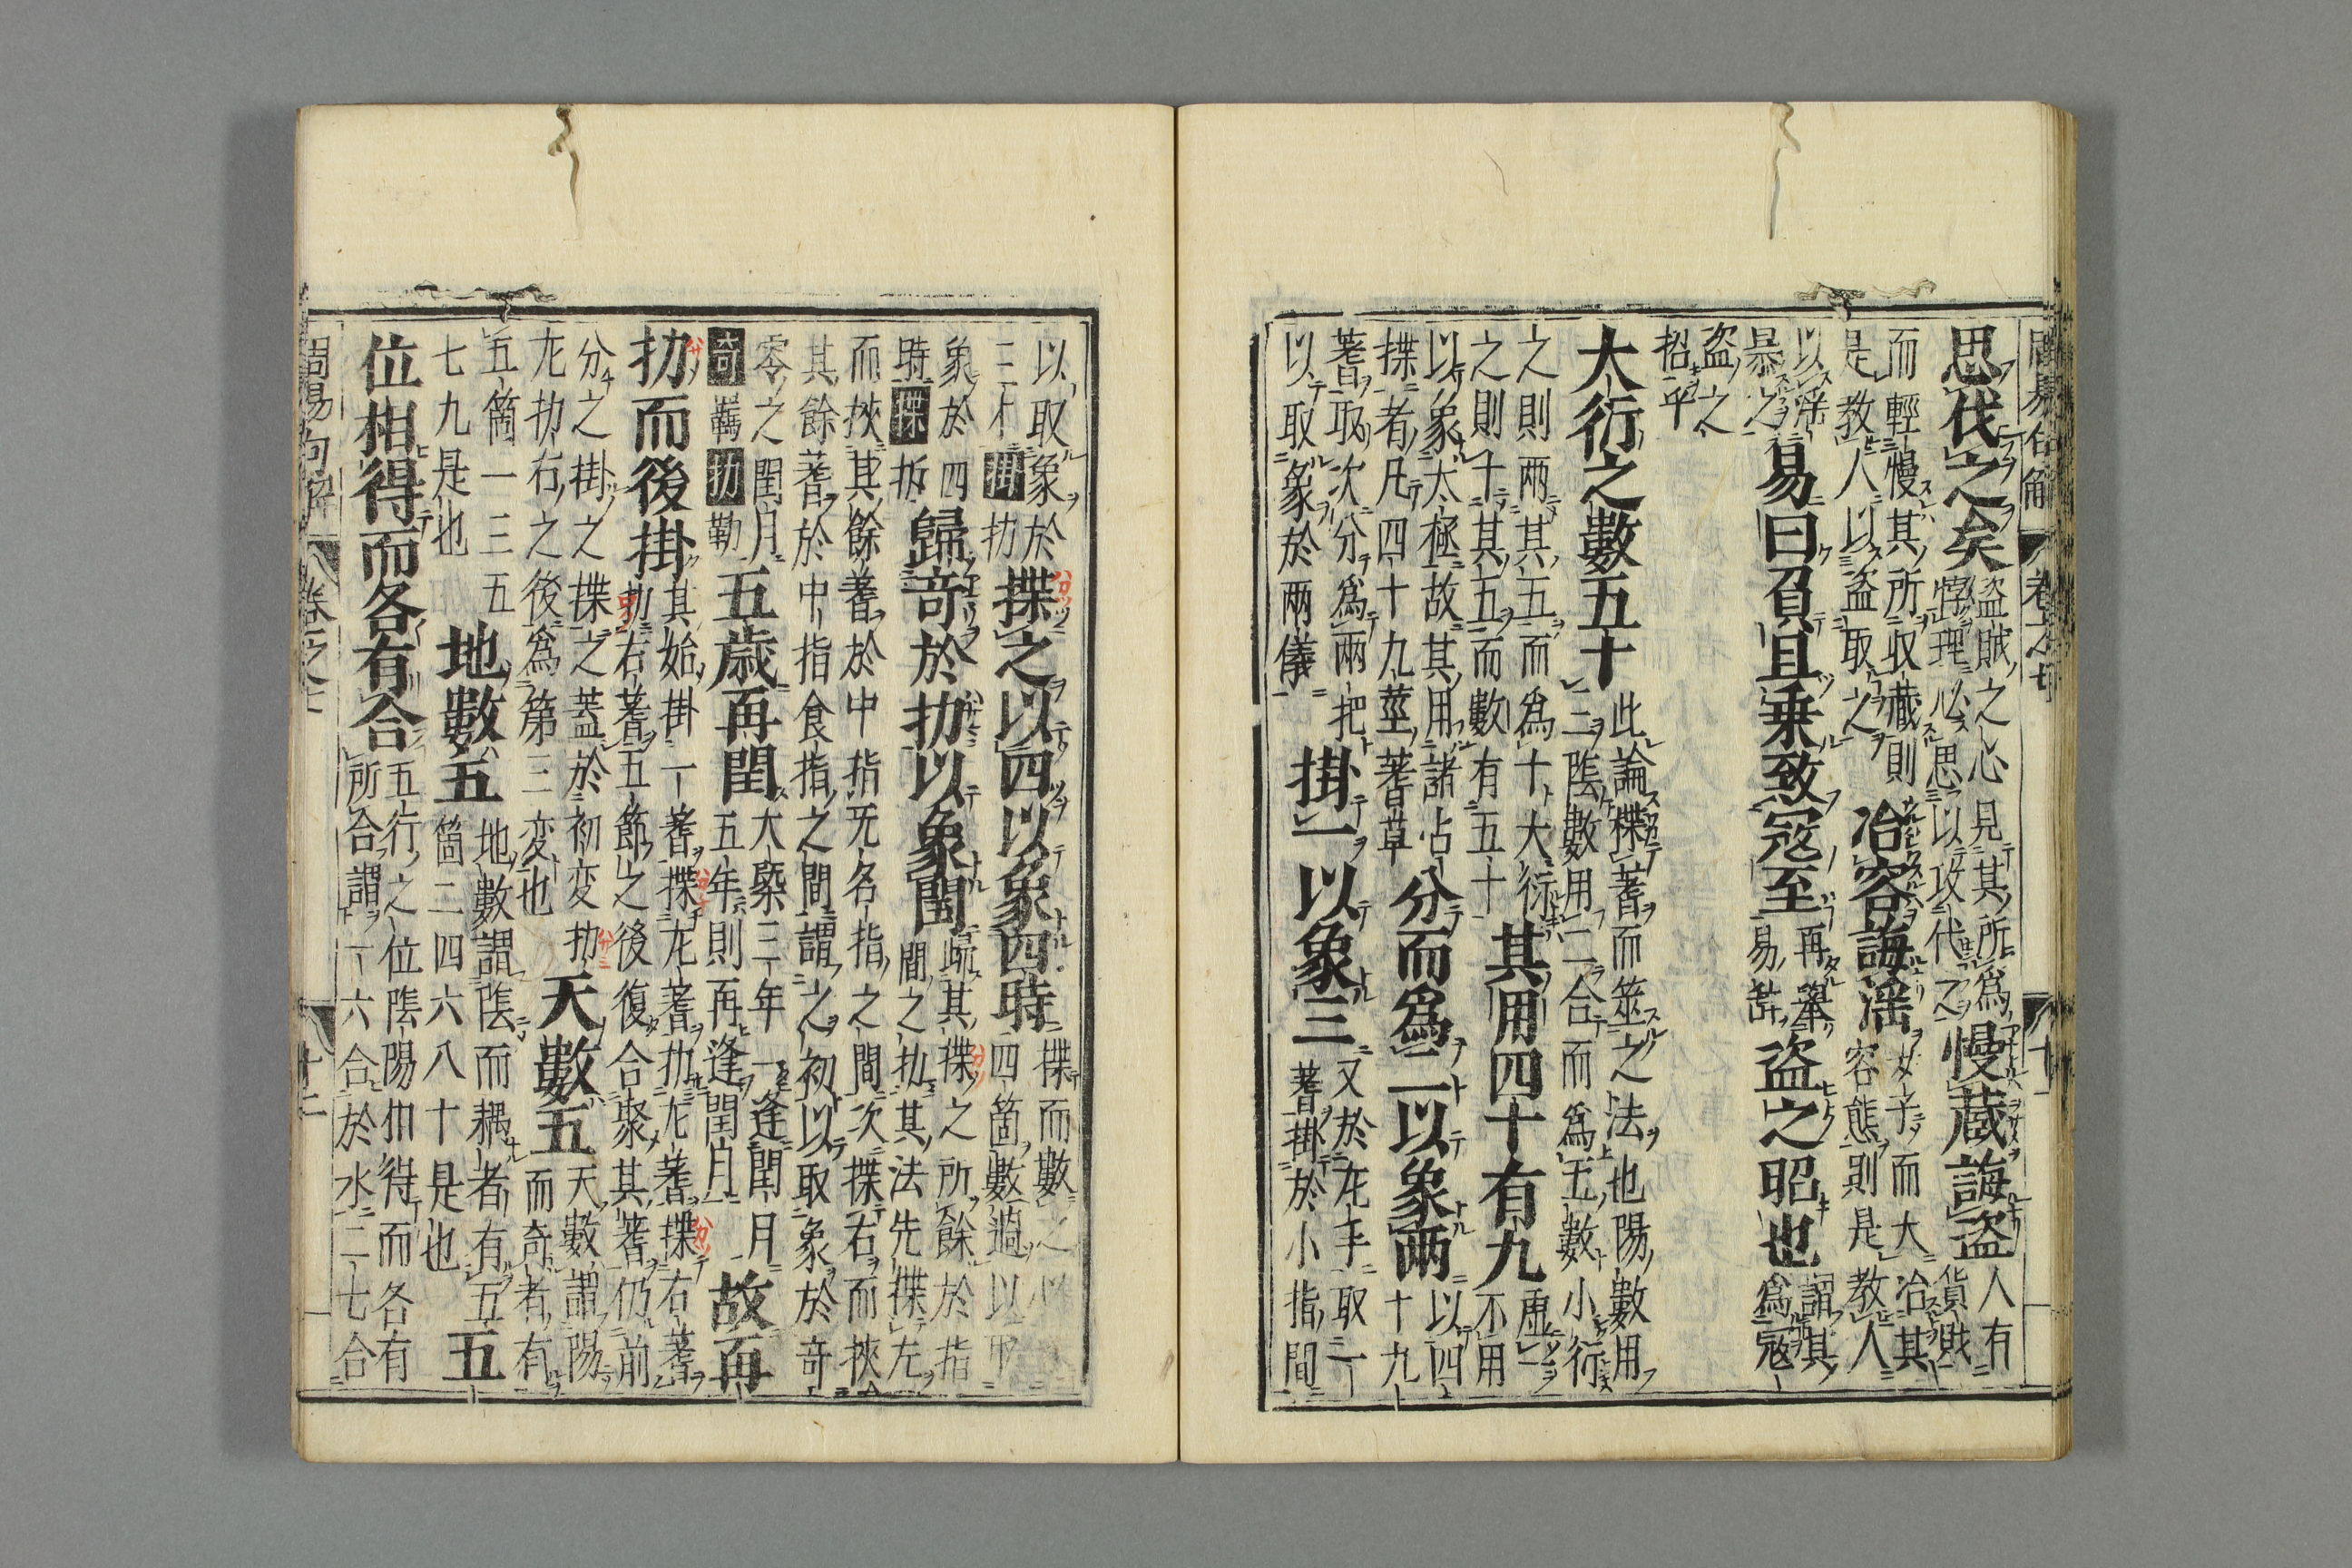 周易句解 卷之七 十一
思伐之矣
盜賊之心見其所爲
悖理必思以攻伐之
慢藏誨盗
人有
貨財
而輕慢其所収藏則
是教人以盗取之
冶容誨淫
女子而大冶其
容態則是教人
以淫
暴之
易曰負且乗致寇至
再舉
易辞
盗之昭也
謂其
爲寇
盗之
招乎
大衍之數五十
此論揲蓍而筮之法也陽數用
二陰數用二合而爲五數小衍
之則兩其五而爲十大衍
之則十其五而數有五十
其用四十有九
虚一
不用
以象太極故其用諸占
揲者凡四十九莖蓍草
分而爲二以象兩
以四
十九
蓍取次分爲兩把
以取象於兩儀
掛一以象三
又於左手取一
蓍掛於小指間
以取象於
三才掛扐
揲之以四以象四時
揲而數之以
四箇數過以
象於四
時揲折
歸竒於扐以象閏
歸其揲之所餘於指
間之扐其法先揲左
而挾其餘蓍於中指旡名指之間次揲右而挾
其餘蓍於中指食指之間謂之初以取象於竒
零之閏月
奇羈扐勒
五歳再閏
大槩三年一逢閏月
五年則再逢閏月
故再
扐而後掛
其始掛一蓍揲左蓍扐左蓍揲右蓍
扐右蓍五節之後復合聚其蓍仍前
分之掛之揲之蓋於初変扐
左扐右之後爲第三変也
天數五
天數謂陽
而奇者有
五箇一三五
七九是也
地數五
地數謂陰而耦者有五
箇二四六八十是也
五
位相得而各有合
五行之位陰陽相得而各有
所合謂一六合於水二七合
周易句解 卷之七 十二